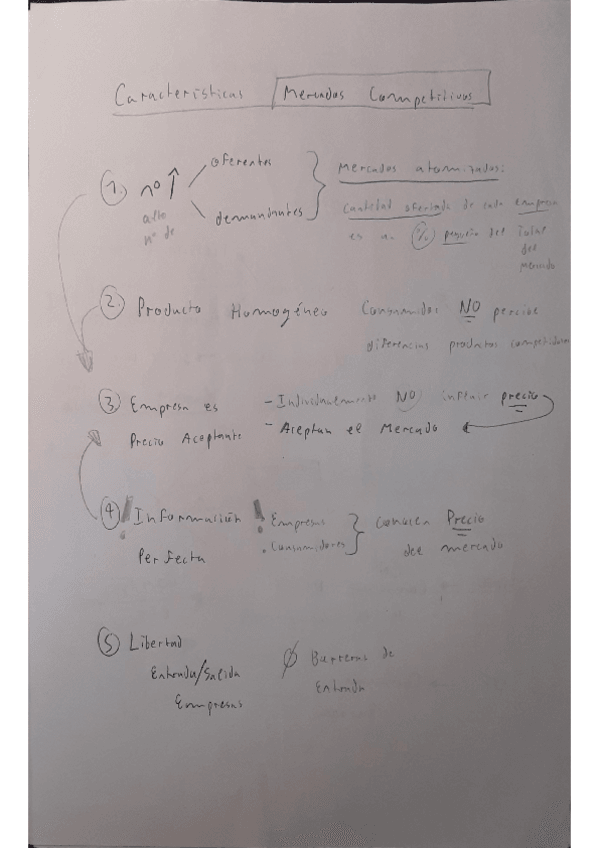 Características Mercados Competitivos
1. nº ↑ oferentes
alto nº de
demandantes
Mercados atomizados:
Cantidad ofertada de cada empresa
es un % pequeño del total
del
mercado
2. Producto Homogéneo
Consumidor NO percibe
diferencias productos competidores
3. Empresa es
Precio Aceptante
- Individualmente NO influir precio
- Aceptan el Mercado
4. ! Información !
Perfecta
. Empresas
. Consumidores
conocen Precio
del mercado
5 Libertad
Entrada/Salida
Empresas
Ø Barreras de
Entrada